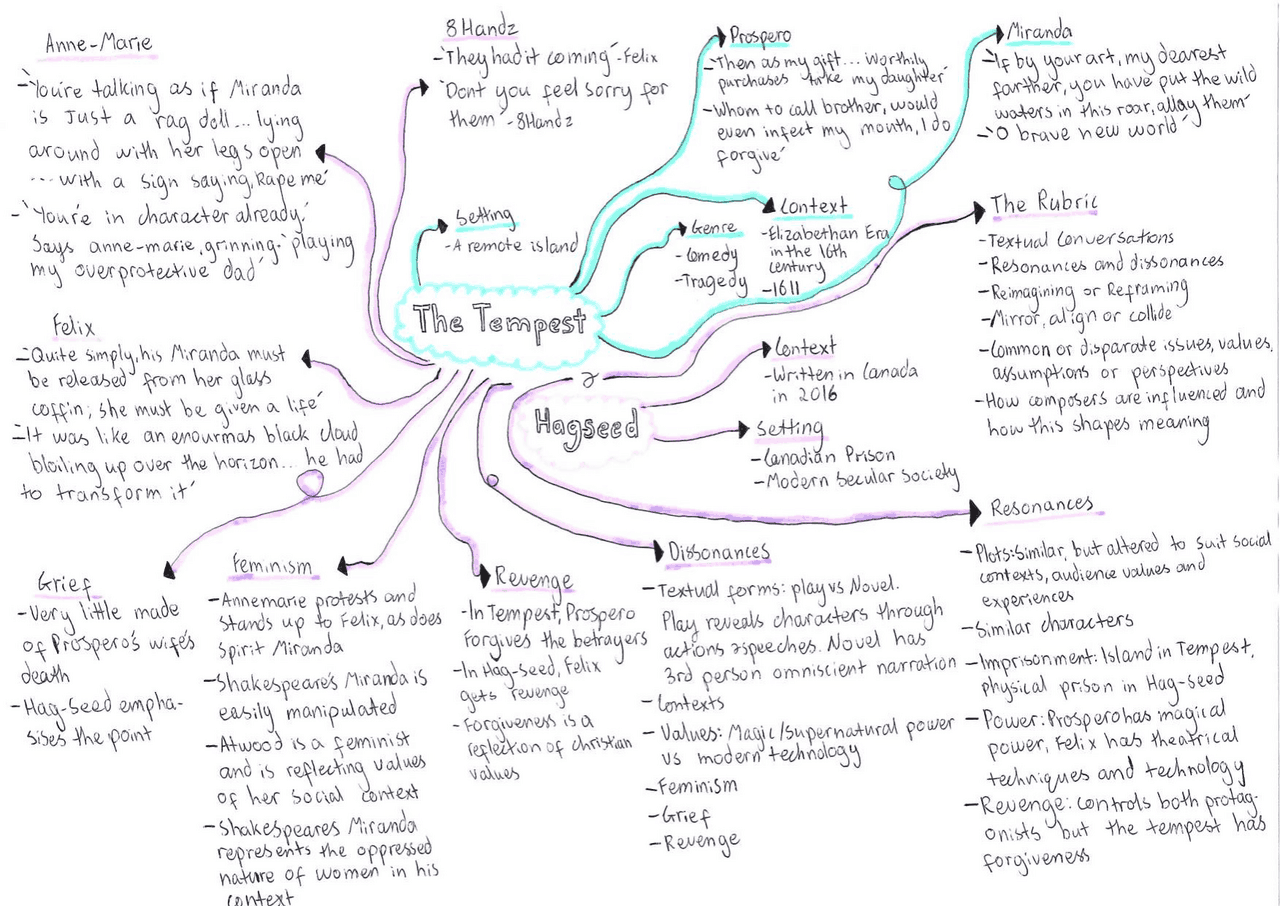 Anne-Marie
-'You're talking as if Miranda
is Just a rag doll... lying
around with her legs open
...with a sign saying, Rape me'
-'You're in character already,'
Says anne-marie, grinning-'playing
my overprotective dad'
8Handz
-'They had it coming'-Felix
'Dont you feel sorry for
them'-8Handz
Prospero
-'Then as my gift... worthily
purchases take my daughter'
-'Whom to call brother, would
even infect my mouth, I do
forgive'
Miranda
-'If by your art, my dearest
farther, you have put the wild
waters in this roar, allay them'
-'O brave new world'
Setting
-A remote island
Genre
-Comedy
-Tragedy
Context
-Elizabethan Era
in the 16th
century
-1611
The Rubric
-Textual Conversations
-Resonances and dissonances
-Reimagining or Reframing
-Mirror, align or collide
-Common or disparate issues, values,
assumptions or perspectives
-How composers are influenced and
how this shapes meaning
The Tempest
Felix
-'Quite simply, his Miranda must
be released from her glass
coffin; she must be given a life'
-'It was like an enourmas black cloud
bloiling up over the horizon... he had
to transform it'
Hagseed
Context
-Written in Canada
in 2016
Setting
-Canadian Prison
-Modern Secular Society
Grief
-Very little made
of Prospero's wife's
death
-Hag-Seed empha-
sises the point
Feminism
-Annemarie protests and
stands up to Felix, as does
Spirit Miranda
-Shakespeare's Miranda is
easily manipulated
-Atwood is a feminist
and is reflecting values
of her social context
-Shakespeares Miranda
represents the oppressed
nature of women in his
context
Revenge
-In Tempest, Prospero
Forgives the betrayers
-In Hag-Seed, Felix
gets revenge
-Forgiveness is a
reflection of christian
values
Dissonances
-Textual forms: play vs Novel.
Play reveals characters through
actions & speeches. Novel has
3rd person omniscient narration
-Contexts
-Values: Magic/Supernatural power
vs modern technology
-Feminism
-Grief
-Revenge
Resonances
-Plots: Similar, but altered to suit social
contexts, audience values and
experiences
-Similar characters
-Imprisonment: Island in Tempest,
physical prison in Hag-Seed
-Power: Prospero has magical
power, Felix has theatrical
techniques and technology
-Revenge: controls both protag-
onists but the tempest has
forgiveness